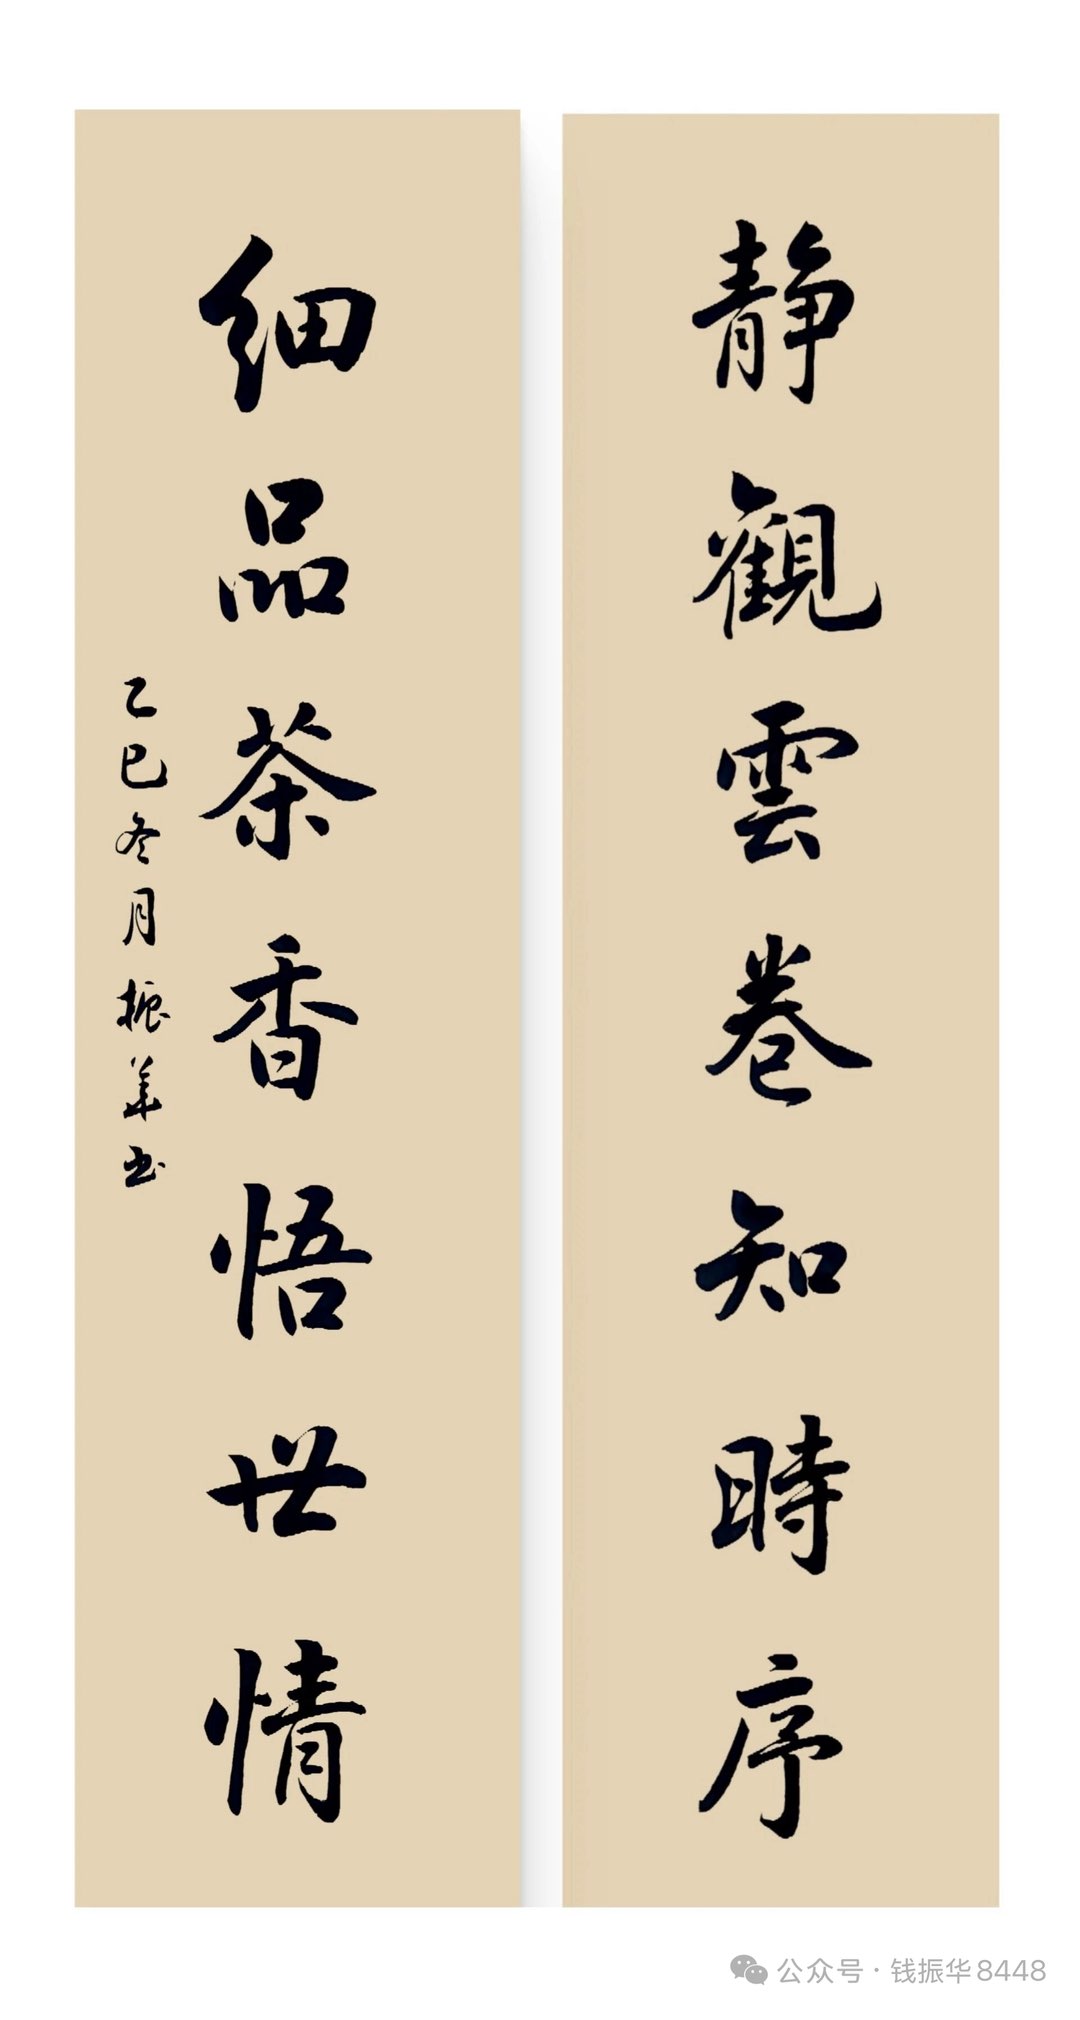 静觀雲卷知時序
细品茶香悟世情
乙巳冬月振华书
公众号·钱振华8448